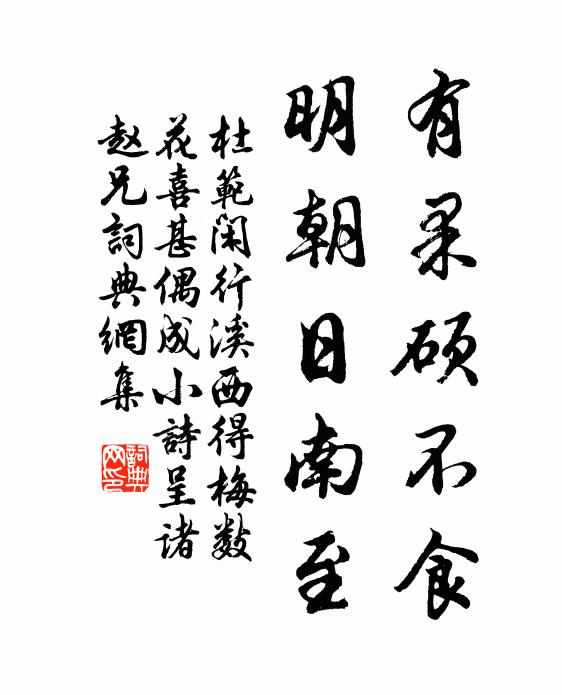 有果碩不食
明朝日南至
杜範閑行溪西得梅数
花喜甚偶成小詩呈诸
赵兄詞典網集
詞典
网印